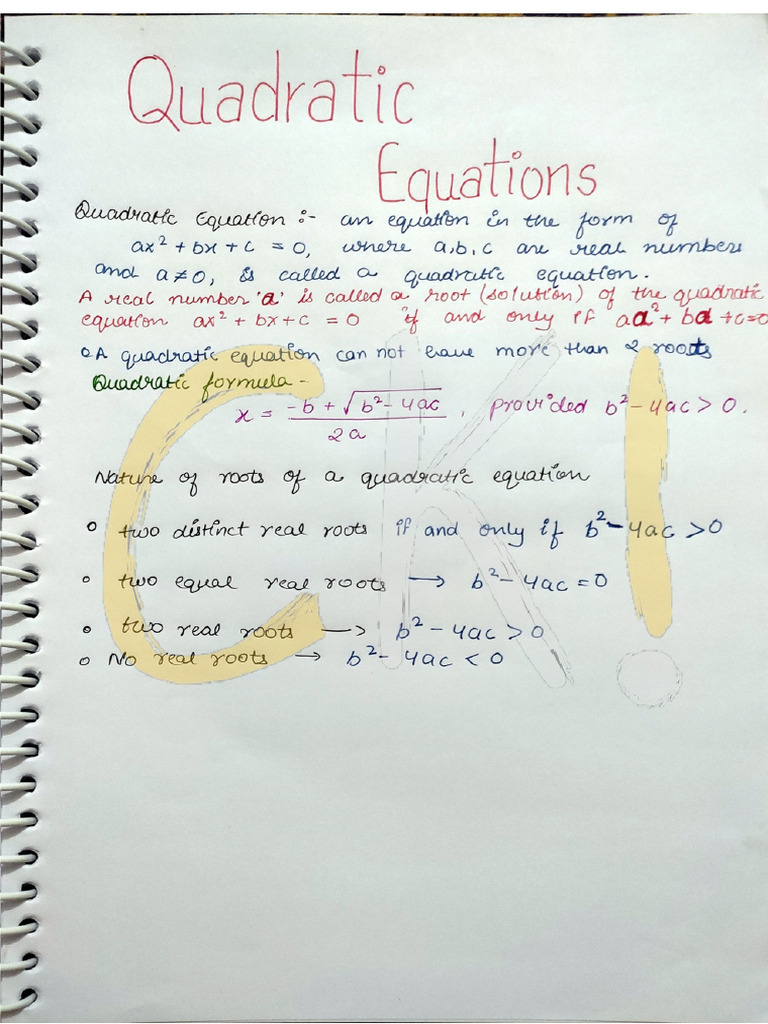 Quadratic
Equations
Quadratic Equation :- an equation in the form of
ax² + bx + c = 0, where a,b,c are real numbers
and a ≠ 0, is called a quadratic equation.
A real number 'α' is called a root (solution) of the quadratic
equation ax² + bx + c = 0 if and only if aα² + bα + c = 0
A quadratic equation can not have more than 2 roots
Quadratic formula -
x = (-b + √(b² - 4ac)) / 2a, provided b² - 4ac > 0.
Nature of roots of a quadratic equation
○ two distinct real roots if and only if b² - 4ac > 0
○ two equal real roots → b² - 4ac = 0
○ two real roots → b² - 4ac > 0
○ No real roots → b² - 4ac < 0
CK!